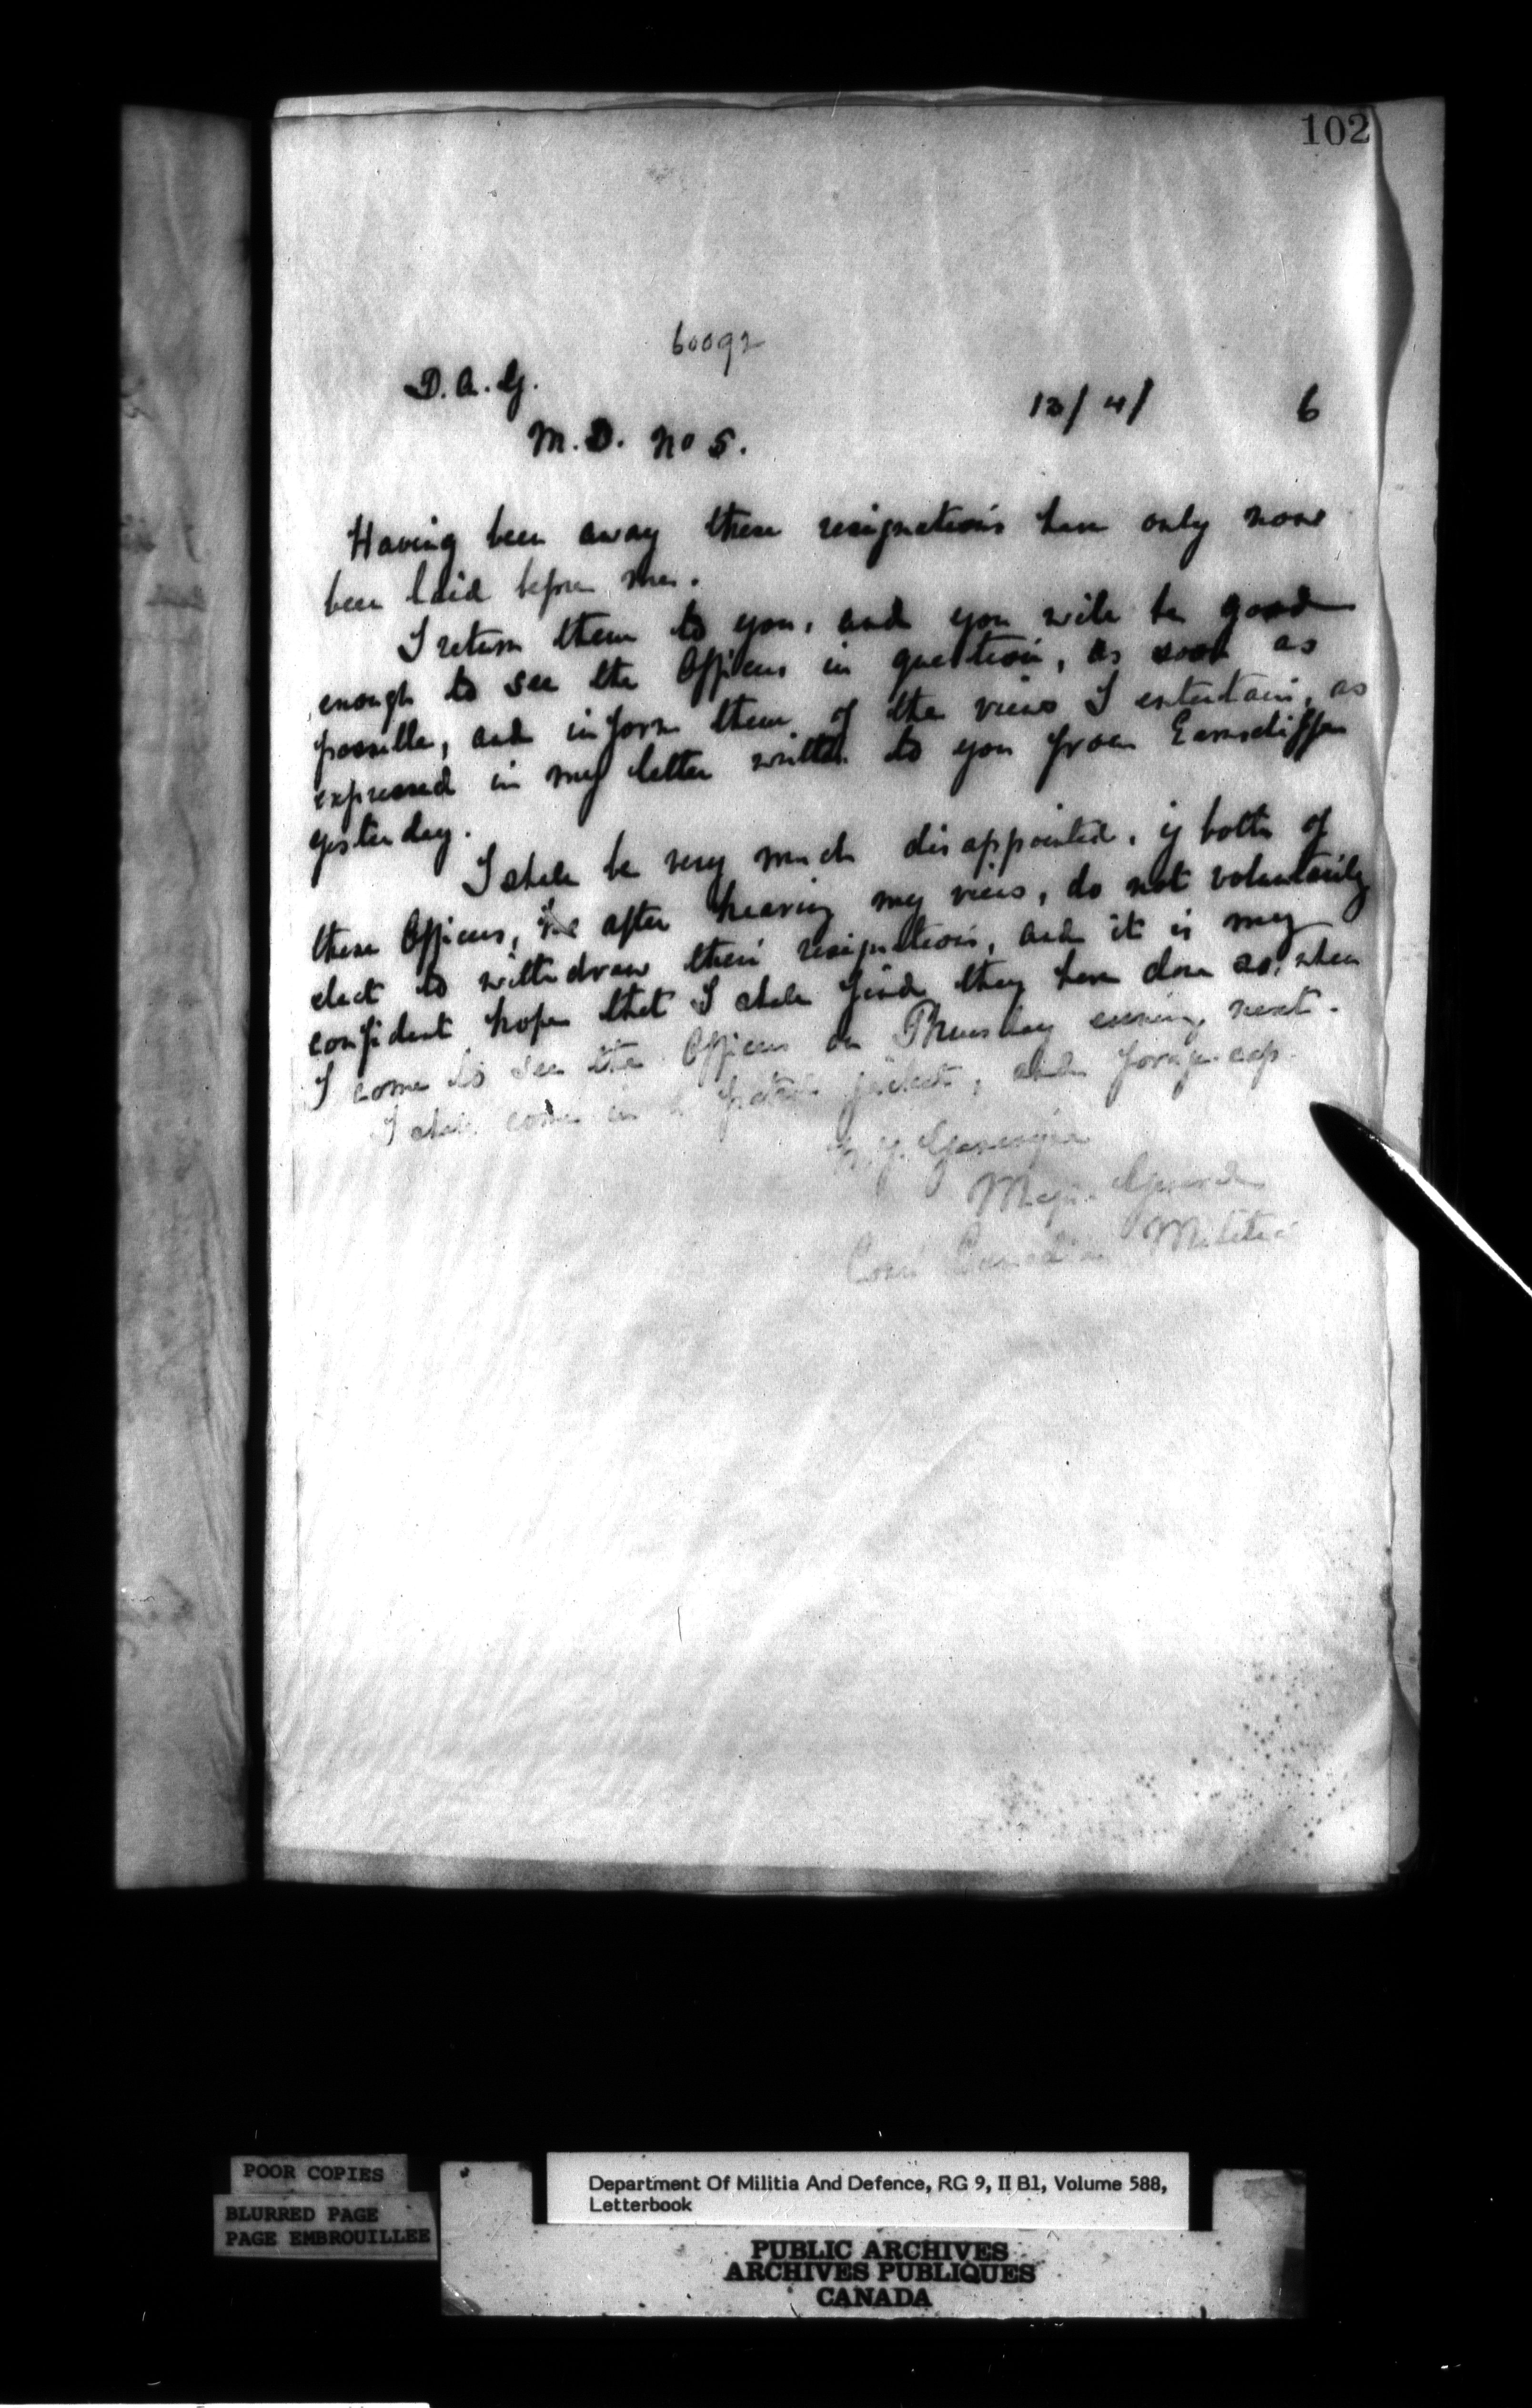 102
60092
D.A.G.
M.D. No 5.
13/4/ 6
Having been away these resignations have only now
been laid before me.
I return them to you, and you will be good
enough to see the Officers in question, as soon as
possible, and inform them of the views I entertain, as
expressed in my letter written to you from Earnscliffe
yesterday.
I shall be very much disappointed, if both of
these Officers, after hearing my views, do not voluntarily
elect to withdraw their resignations, and it is my
confident hope that I shall find they have done so, when
I come to see the Officers on Thursday evening next.
I shall come in a jacket, and forage-cap.
Major General
Com Canadian Militia
POOR COPIES
BLURRED PAGE
PAGE EMBROUILLEE
Department Of Militia And Defence, RG 9, II B1, Volume 588,
Letterbook
PUBLIC ARCHIVES
ARCHIVES PUBLIQUES
CANADA